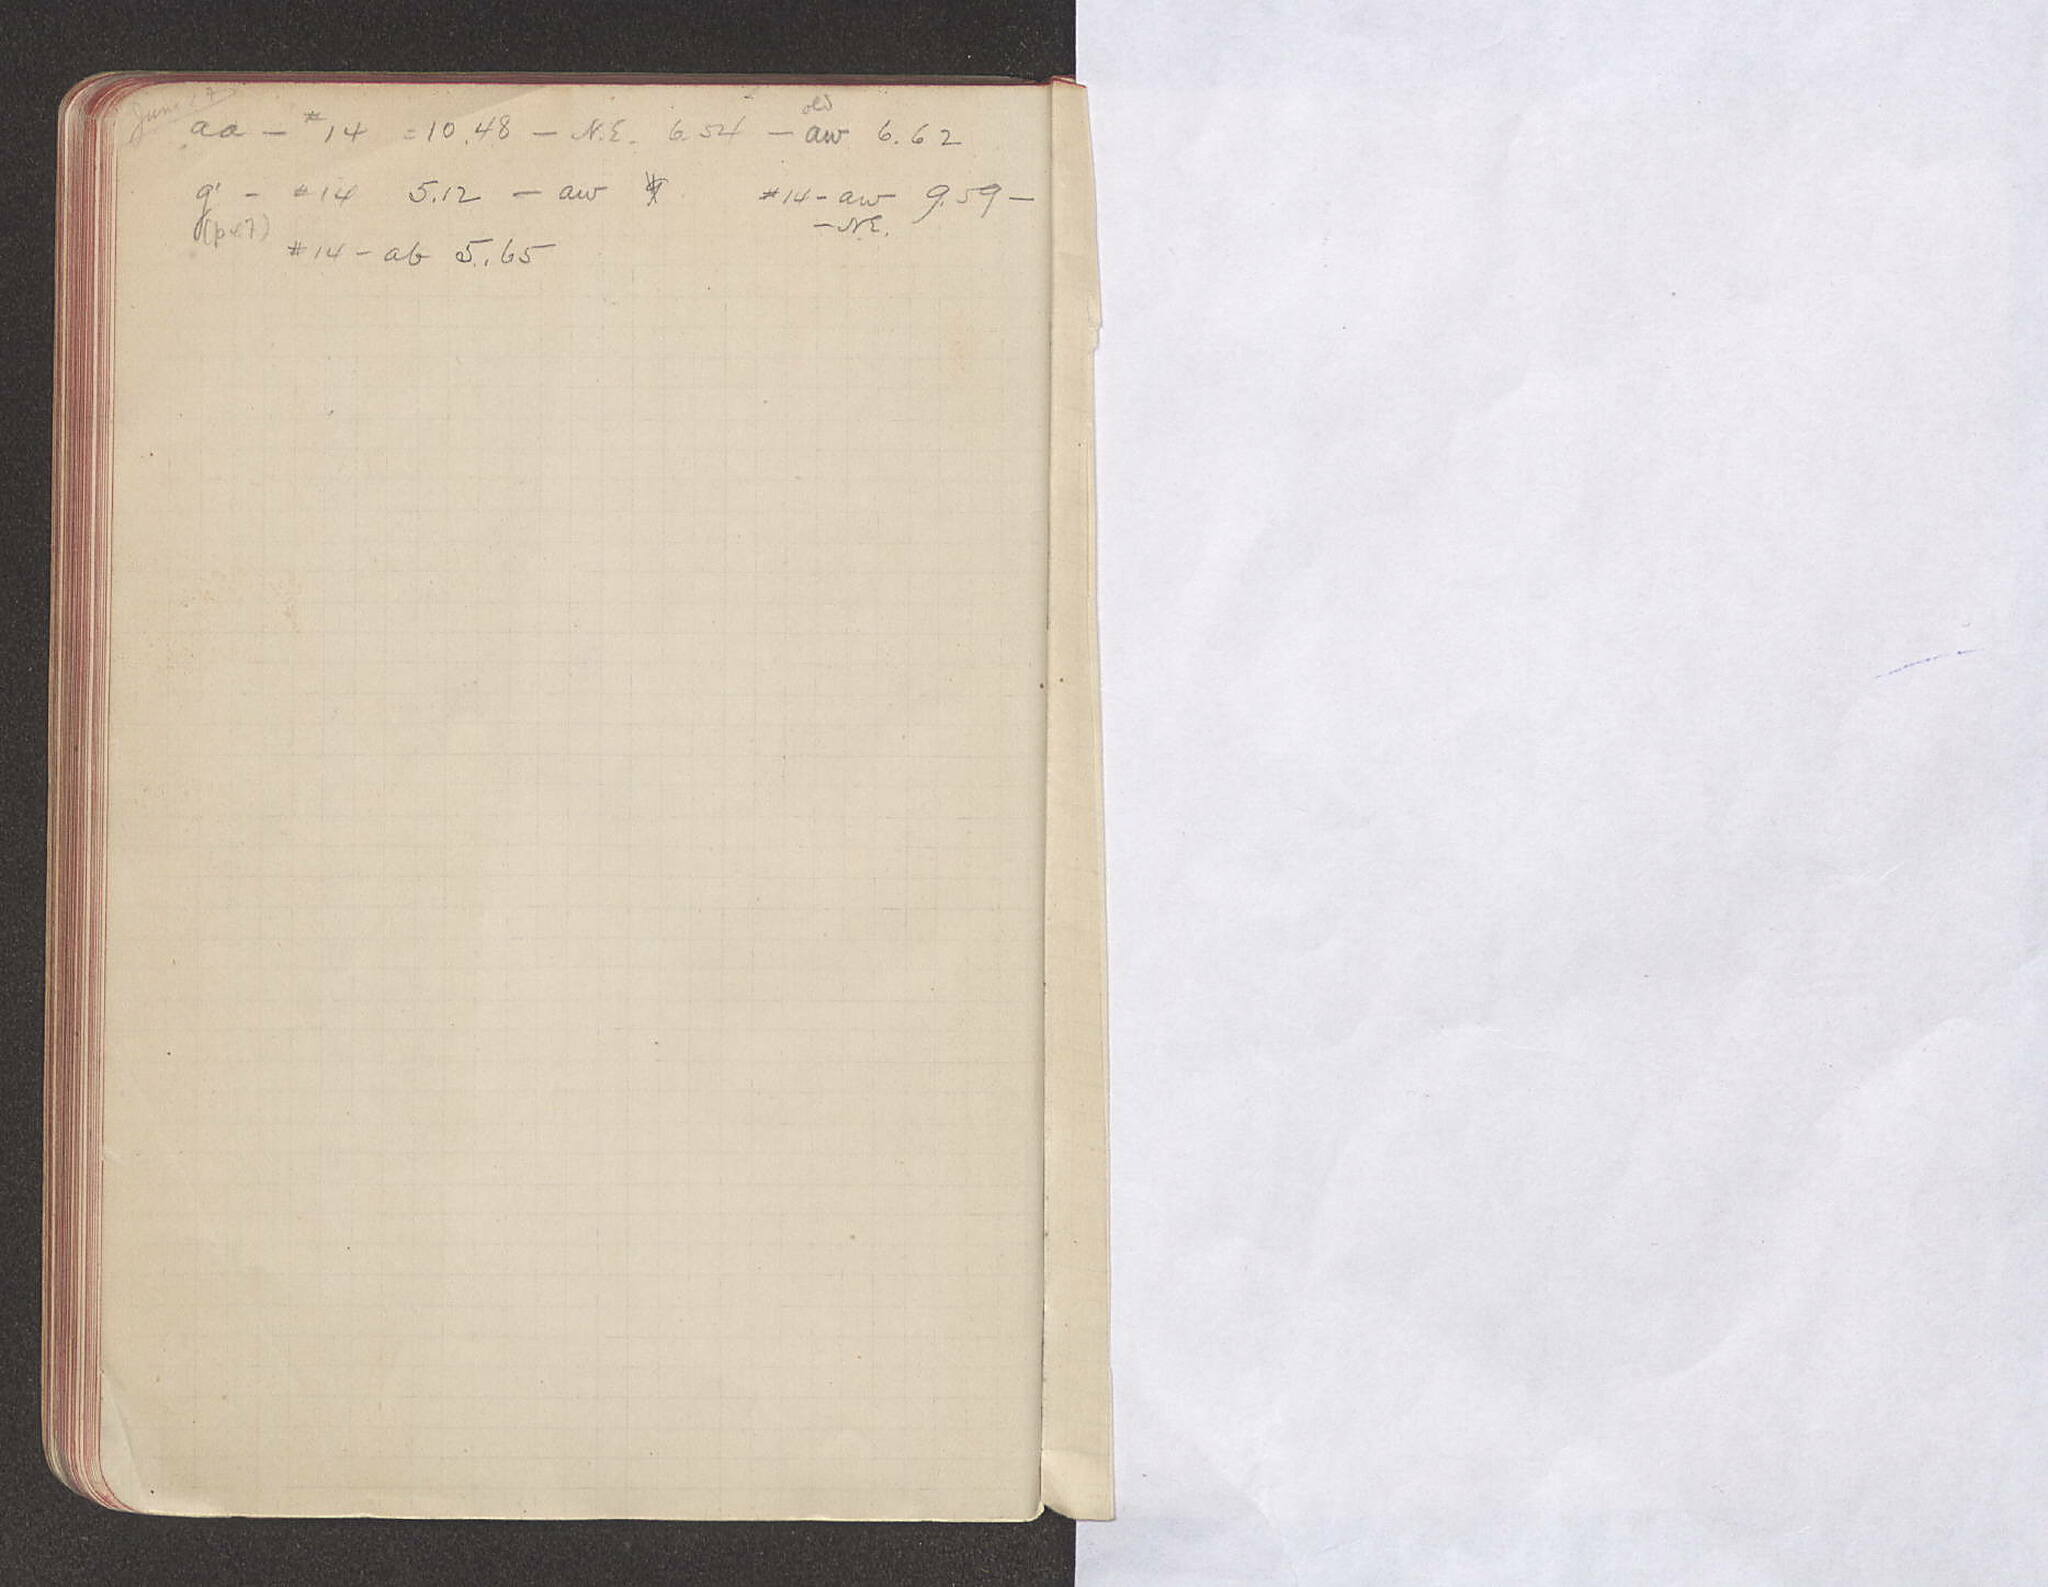 June 27
old
aa - #14 = 10.48 - N.E. 6.54 - aw 6.62
g' - #14 5.12 - aw #14 - aw 9.59 -
- N.E.
#14 - ab 5.65